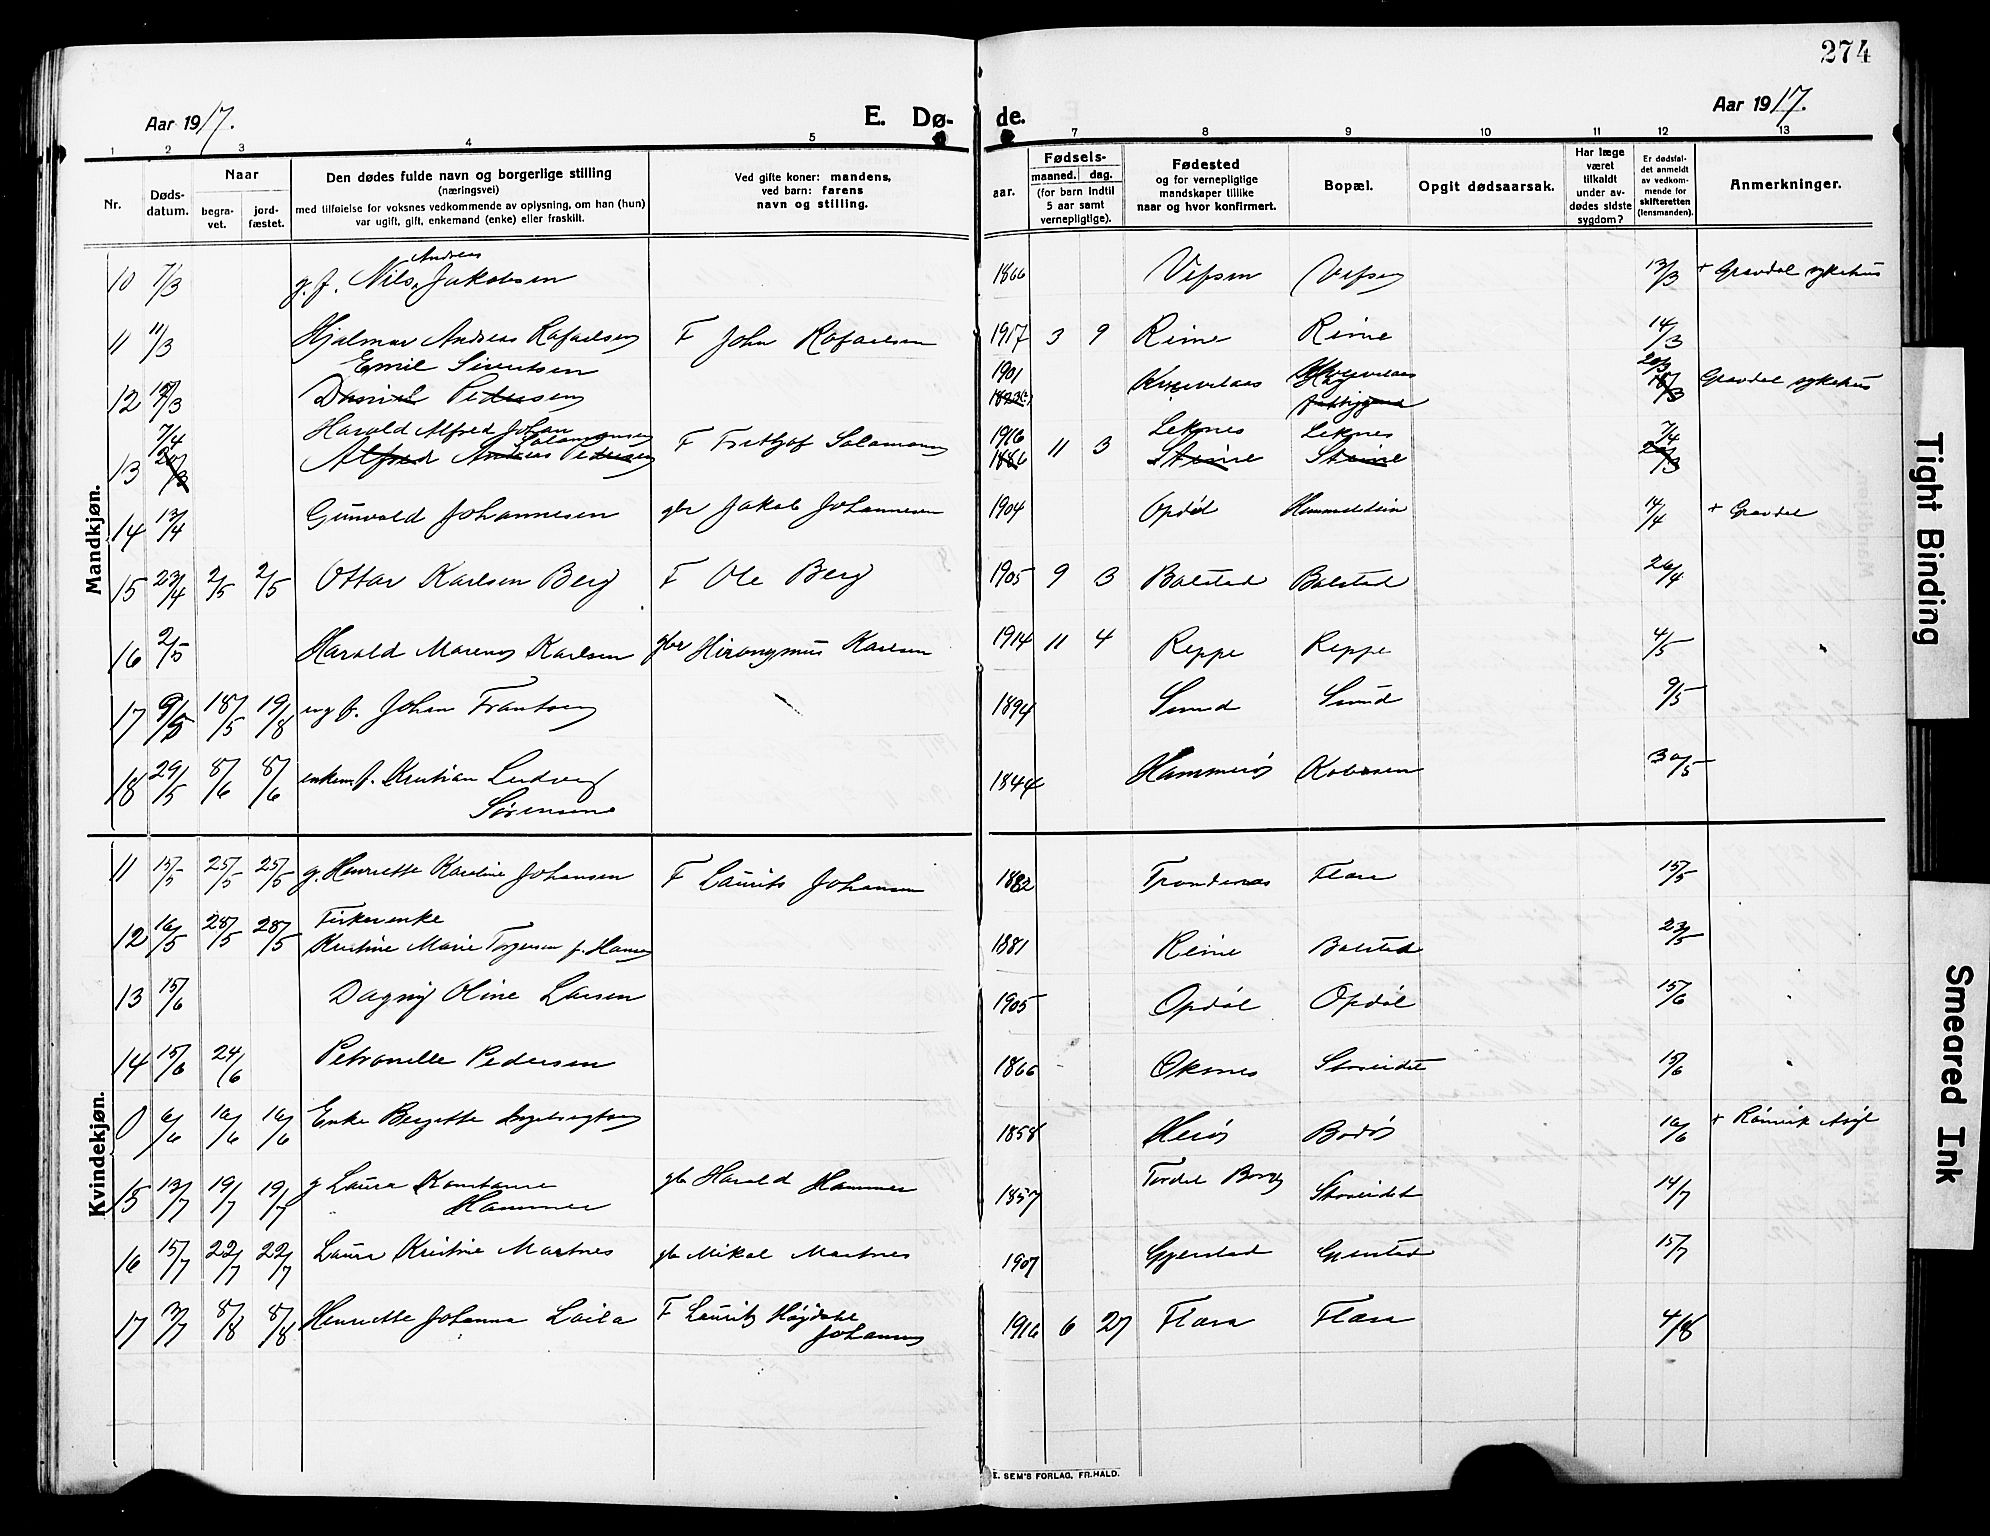 274
Aar 1917.
E. Dø-
de.
Aar 1917.
1 2 3 4 5 7 8 9 10 11 12 13
Nr.
Døds-
datum.
Naar
begra-
vet.
jord-
fæstet.
Den dødes fulde navn og borgerlige stilling
(næringsvei)
med tilføielse for voksnes vedkommende av oplysning, om han (hun)
var ugift, gift, enkemand (enke) eller fraskilt.
Ved gifte koner: mandens,
ved barn: farens
navn og stilling.
aar.
Fødsels-
maaned. dag.
(for barn indtil
5 aar samt
vernepligtige).
Fødested
og for vernepligtige
mandskaper tillike
naar og hvor konfirmert.
Bopæl.
Opgit dødsaarsak.
Har læge
været
tilkaldt
under av-
dødes sidste
sygdom?
Er dødsfal-
det anmeldt
av vedkom-
mende for
skifteretten
(lensmanden).
Anmerkninger.
Mandkjøn.
Andreas
10 7/3 g. f. Nils Jakobsen 1866 Vefsen Vefsen 13/3 + Gravdal sykehus
11 11/3 Hjalmar Andreas Rafaelsen F John Rafaelsen 1917 3 9 Reine Reine 14/3
Emil Sivertsen 1901 20/3
12 Daniel Pedersen Gravdal sykehus
7/4 Harald Alfred Johan Salamonsen F Fritjof Salamonsen 1916 11 3 Leknes Leknes 7/4
13 Alfred Andreas Pedersen 1886 Steine Steine
14 13/4 Gunvald Johannesen gbr Jakob Johannesen 1904 Opdøl Hemmelstein 14/4 + Gravdal
15 23/4 2/5 2/5 Ottar Karlsen Berg F Ole Berg 1905 9 3 Balstad Balstad 26/4
16 2/5 Harald Marenus Karlsen gbr Hironymus Karlsen 1914 11 4 Reppe Reppe 4/5
17 9/5 18/5 19/8 ug f. Johan Frantsen 1894 Sund Sund 9/5
18 29/5 8/6 8/6 enkem. f. Kristian Ludvig 1844 Hammerøy 30/5
Sørensen
Kvindekjøn.
11 15/5 25/5 25/5 g. Henriette Karoline Johansen F Laurits Johansen 1882 Trondenes Flæsa 15/5
Fiskerenke
12 16/5 28/5 28/5 Kristine Marie Torgersen f. Hansen 1881 Reine Balstad 23/5
13 15/6 Dagny Oline Larsen 1905 Opdøl Opdøl 15/6
14 15/6 24/6 Petronelle Pedersen 1866 Øksnes Storeidet 15/6
0 6/6 16/6 16/6 Enke Bergitte 1858 Herøy Bodø 16/6 + Rønvik Asyl
15 13/7 19/7 19/7 g Laura Konstanse gbr Harald Hammer 1857 Storeidet 14/7
Hammer
16 15/7 22/7 22/7 Laura Kristine Martnes gbr Mikal Martnes 1907 Gjerstad Gjerstad 15/7
17 3/7 8/8 8/8 Henriette Johanna Laila F Laurits Høydahl 1916 6 27 Flæsa Flæsa 4/8
Johansen
E. SEM'S FORLAG, FR.HALD.
Tight Binding
Smeared Ink